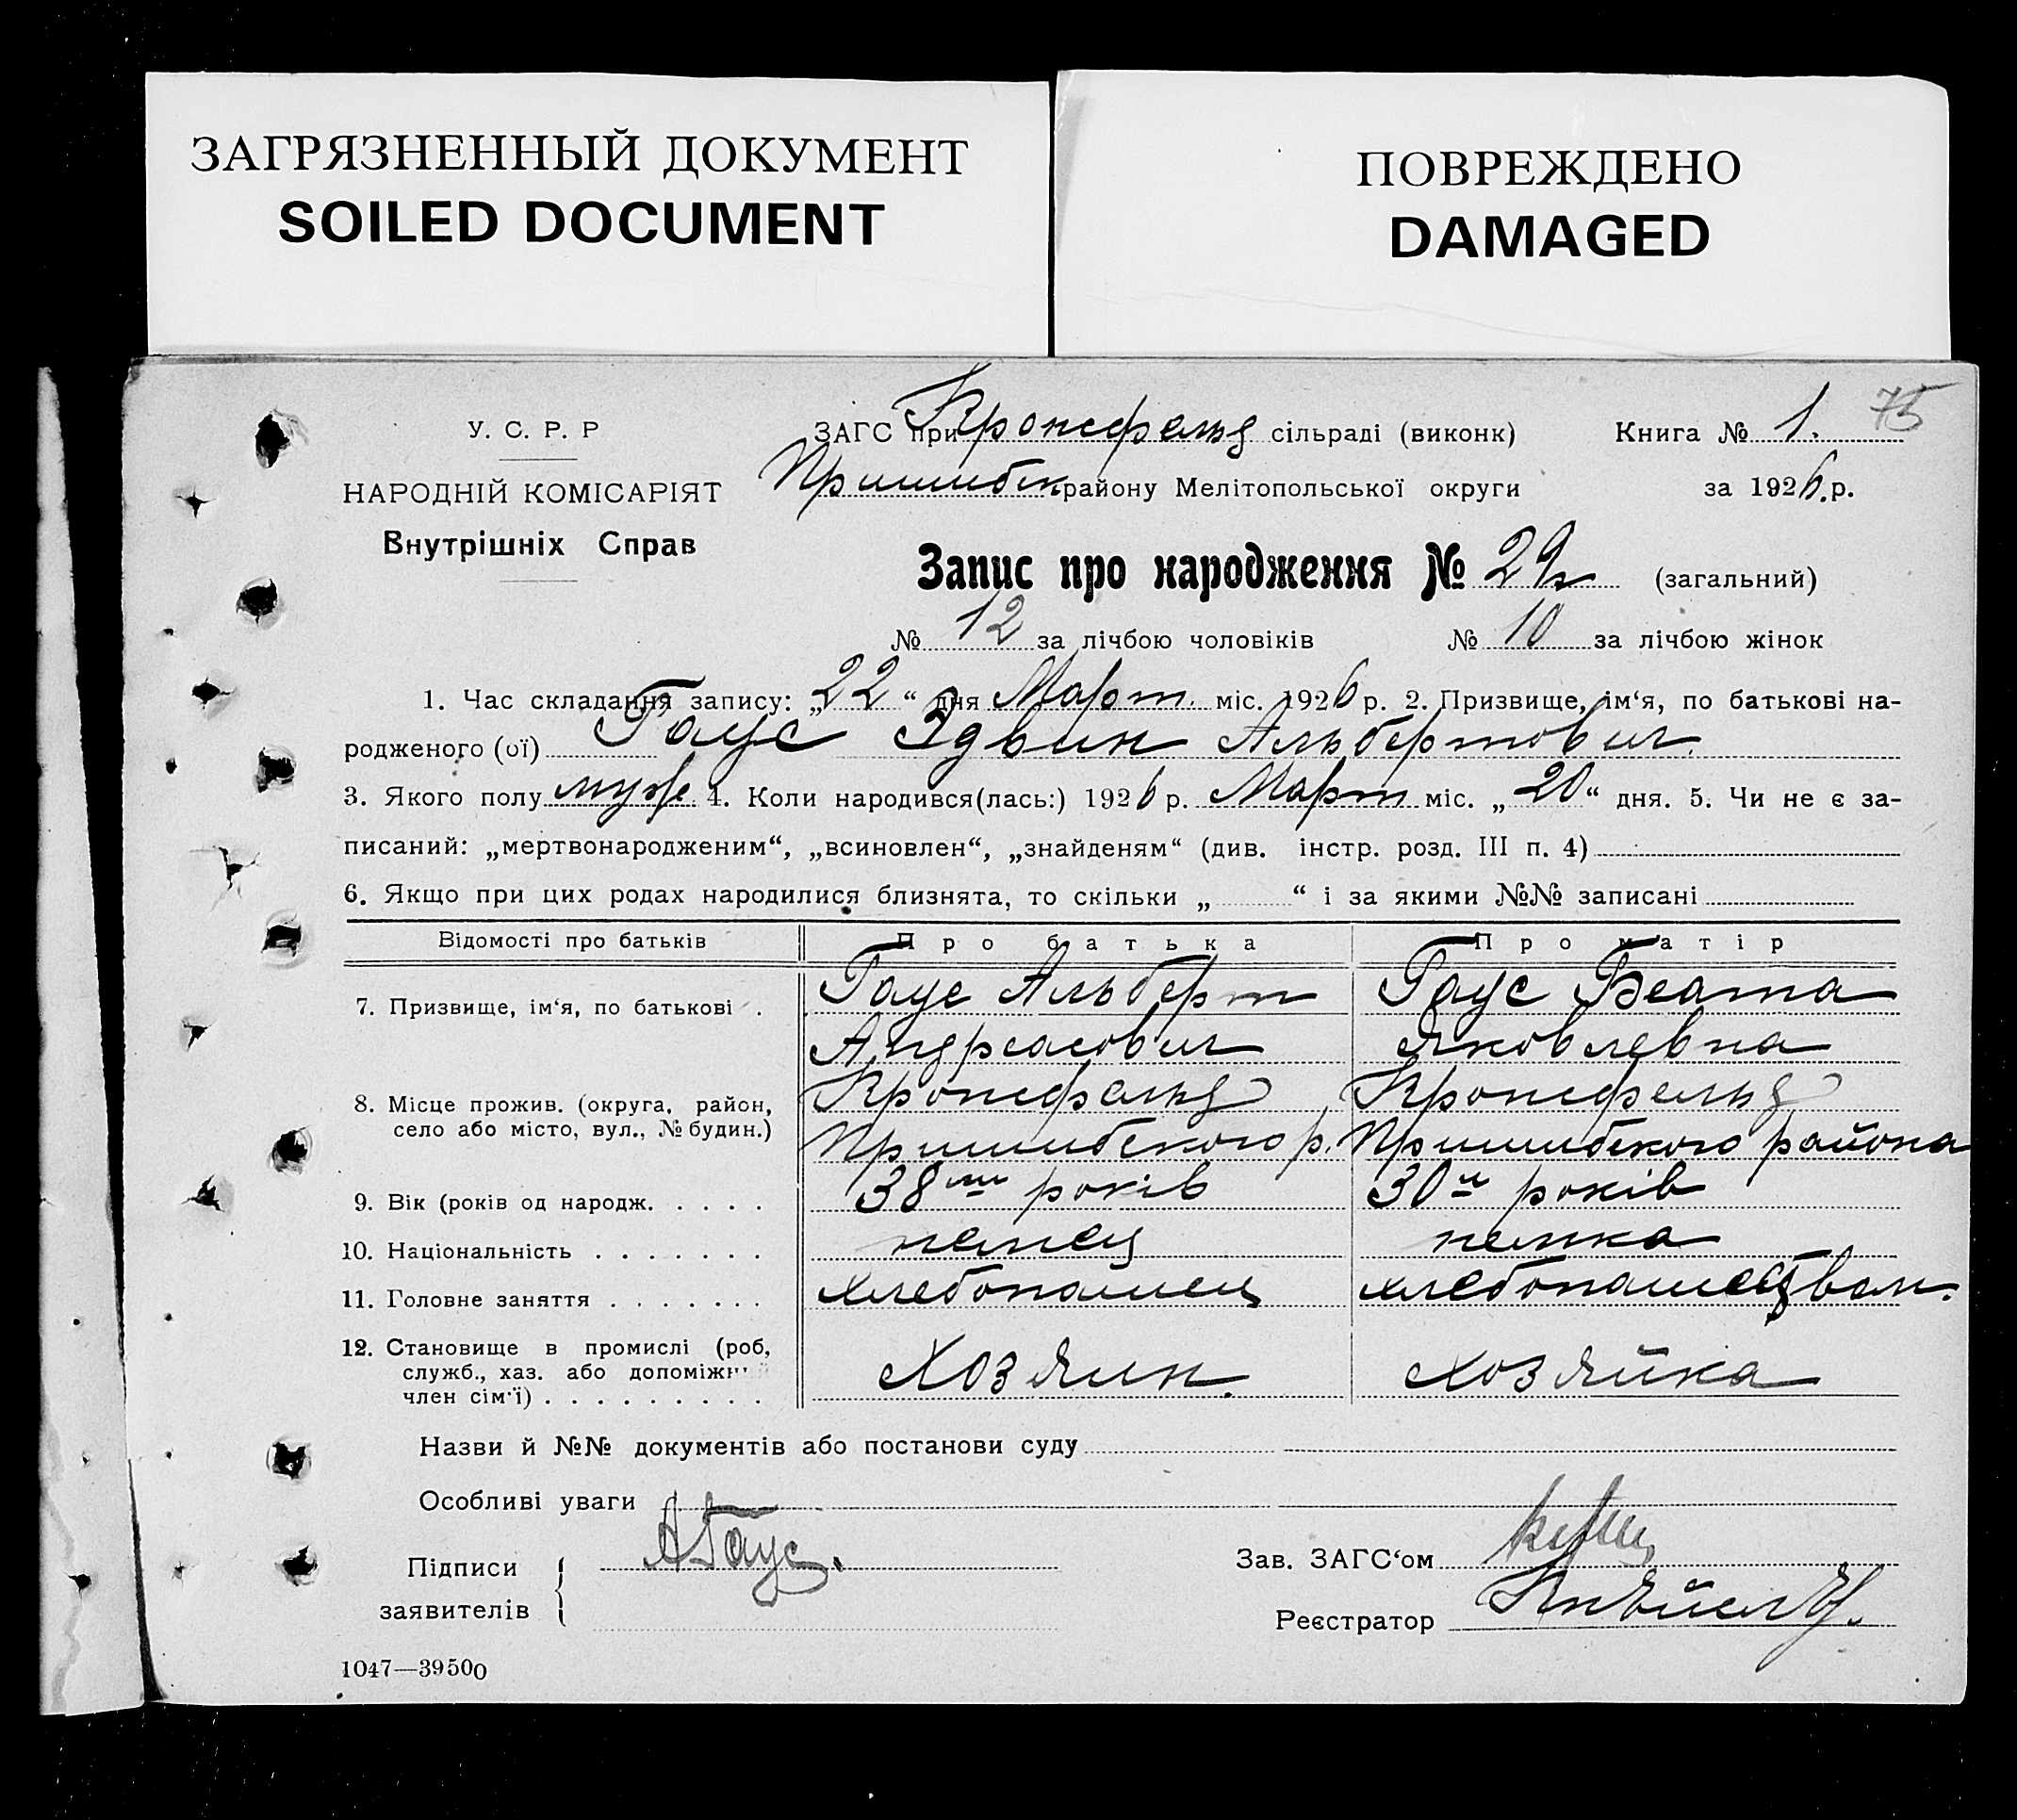 ЗАГРЯЗНЕННЫЙ ДОКУМЕНТ
SOILED DOCUMENT
ПОВРЕЖДЕНО
DAMAGED
75
У. С. Р. Р
НАРОДНІЙ КОМІСАРІЯТ
Внутрішніх Справ
ЗАГС при Кронсфельд сільраді (виконк) Книга № 1.
Пришибск. району Мелітопольської округи за 1926.р.
Запис про народження № 29 (загальний)
№ 12 за лічбою чоловіків № 10 за лічбою жінок
1. Час складання запису: „22“ дня Март. міс. 1926 р. 2. Призвище, ім‘я, по батькові на-
родженого (ої) Гаус Эдвин Альбертович.
3. Якого полу муж. 4. Коли народився(лась:) 1926 р. Март міс. „20“ дня. 5. Чи не є за-
писаний: „мертвонародженим“, „всиновлен“, „знайденям“ (див. інстр. розд. III п. 4)
6. Якщо при цих родах народилися близнята, то скільки „ “ і за якими №№ записані
Відомості про батьків Про батька Про матір
7. Призвище, ім‘я, по батькові . Гаус Альберт Гаус Беата
Андреасович Яковлевна
8. Місце прожив. (округа, район, Кронсфельд Кронсфельд
село або місто, вул., № будин.) Пришибского р. Пришибского района
9. Вік (років од народж. . . . . 38ми років 30и років
10. Національність . . . . . . . немец немка
11. Головне заняття . . . . . . . хлебопашец хлебопашеств
12. Становище в промислі (роб,
служб., хаз. або допоміжн Хозяин. хозяйка
член сім‘ї) . . . . . . . . .
Назви й №№ документів або постанови суду
Особливі уваги
Підписи А Гаус. Зав. ЗАГС‘ом
заявителів Реєстратор
1047—39500